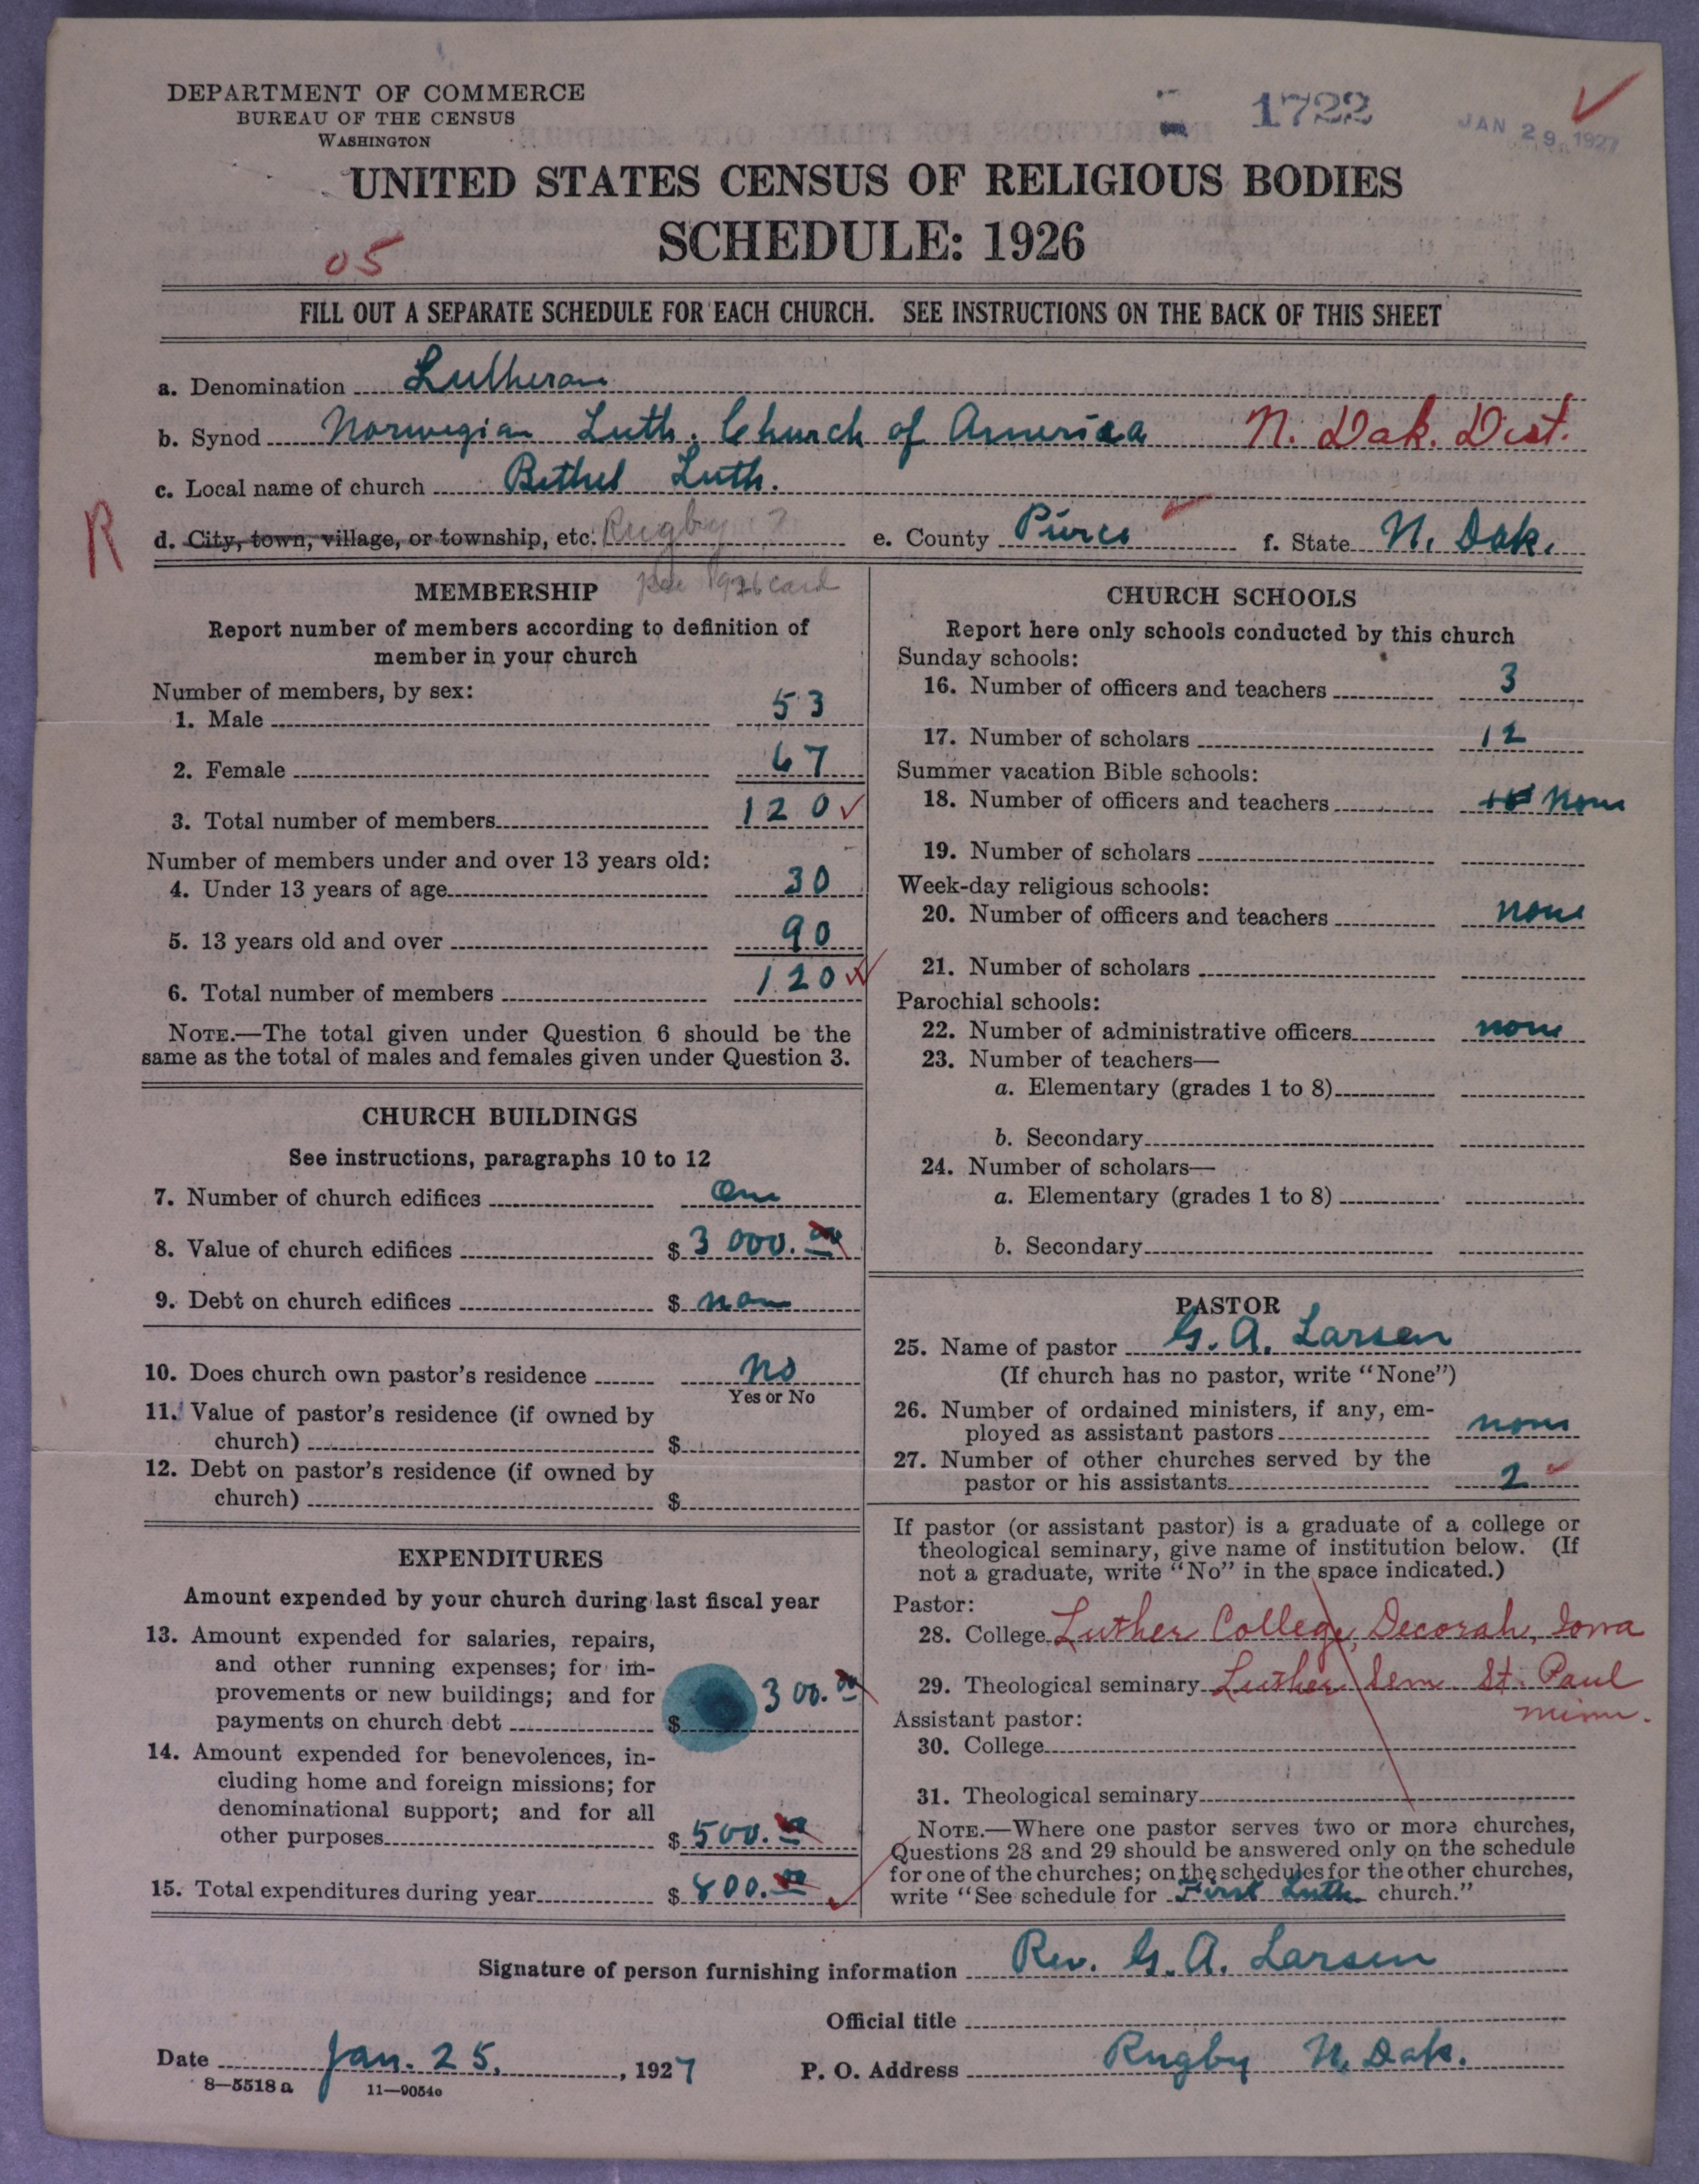 DEPARTMENT OF COMMERCE
BUREAU OF THE CENSUS
WASHINGTON
1722
JAN 29 1927
UNITED STATES CENSUS OF RELIGIOUS BODIES
SCHEDULE: 1926
05
FILL OUT A SEPARATE SCHEDULE FOR EACH CHURCH. SEE INSTRUCTIONS ON THE BACK OF THIS SHEET
a. Denomination Lutheran
b. Synod Norwegian Luth. Church of America N. Dak. Dist.
c. Local name of church Bethel Luth.
R
d. City, town, village, or township, etc. Rugby ? e. County Pierce f. State N. Dak.
MEMBERSHIP
1926 card
Report number of members according to definition of
member in your church
Number of members, by sex:
1. Male 53
2. Female 67
3. Total number of members 120
Number of members under and over 13 years old:
4. Under 13 years of age 30
5. 13 years old and over 90
6. Total number of members 120
NOTE.—The total given under Question 6 should be the
same as the total of males and females given under Question 3.
CHURCH BUILDINGS
See instructions, paragraphs 10 to 12
7. Number of church edifices One
8. Value of church edifices $ 3000.00
9. Debt on church edifices $ none
10. Does church own pastor's residence no
Yes or No
11. Value of pastor's residence (if owned by
church) $
12. Debt on pastor's residence (if owned by
church) $
EXPENDITURES
Amount expended by your church during last fiscal year
13. Amount expended for salaries, repairs,
and other running expenses; for im-
provements or new buildings; and for
payments on church debt $ 300.00
14. Amount expended for benevolences, in-
cluding home and foreign missions; for
denominational support; and for all
other purposes $ 500.00
15. Total expenditures during year $ 800.00
CHURCH SCHOOLS
Report here only schools conducted by this church
Sunday schools:
16. Number of officers and teachers 3
17. Number of scholars 12
Summer vacation Bible schools:
18. Number of officers and teachers None
19. Number of scholars
Week-day religious schools:
20. Number of officers and teachers none
21. Number of scholars
Parochial schools:
22. Number of administrative officers none
23. Number of teachers—
a. Elementary (grades 1 to 8)
b. Secondary
24. Number of scholars—
a. Elementary (grades 1 to 8)
b. Secondary
PASTOR
25. Name of pastor G. A. Larsen
(If church has no pastor, write "None")
26. Number of ordained ministers, if any, em-
ployed as assistant pastors none
27. Number of other churches served by the
pastor or his assistants 2
If pastor (or assistant pastor) is a graduate of a college or
theological seminary, give name of institution below. (If
not a graduate, write "No" in the space indicated.)
Pastor:
28. College Luther College, Decorah, Iowa
29. Theological seminary Luther Sem St. Paul
Minn.
Assistant pastor:
30. College
31. Theological seminary
NOTE.—Where one pastor serves two or more churches,
Questions 28 and 29 should be answered only on the schedule
for one of the churches; on the schedules for the other churches,
write "See schedule for First Luth. church."
Signature of person furnishing information Rev. G. A. Larsen
Official title
Date Jan. 25, 1927 P. O. Address Rugby N. Dak.
8—5518 a 11—9054e